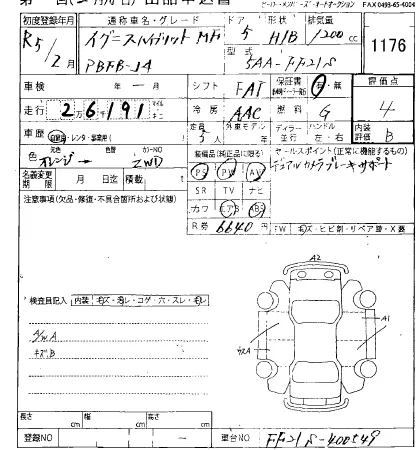 FAX 0493-65-4004
初度登録年月 通称車名・グレード ドア 形状 排気量
R5/2月 イグニスハイブリットMF 5 H/B 1200 cc 1176
PBFB-J4 型式 5AA-FF21S
車検 年 ー 月 シフト FAT 保証書 有・無 評価点
走行 2万6191 冷房 AAC 燃料 G 4
車歴 自家用・レンタ・事業用 定員 5人 外車モデル ディーラー 並行 ハンドル 左・右 内装評価 B
色 元色 オレンジ → 色替 カラーNO ZWD
装備品(純正品に限る) セールスポイント(正常に機能するもの)
PS PW AW デュアルカメラブレーキサポート
名義変更期限 月 日迄 積載 t
SR TV ナビ
注意事項(欠品・修復・不具合箇所および状態)
カワ エアB ABS
R券 6640円
FW キズ・ヒビ割・リペア跡・X要
A2
検査員記入 内装 キズ・汚レ・コゲ・穴・スレ・モレ
A1
A/W A
キズB
長さ cm 幅 cm 高さ cm
登録NO ー 車台NO FF21S-400549